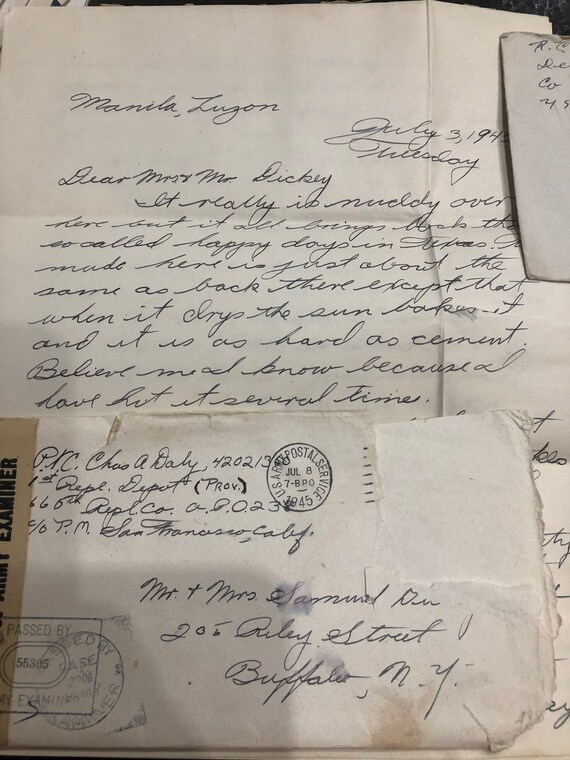 Manila, Luzon
July 3, 194
Tuesday
Dear Mrs & Mr. Dickey
It really is muddy over
here but it all brings back the
so called happy days in Texas.
mude here is just about the
same as back there except that
when it drys the sun bakes it
and it is as hard as cement.
Believe me I know because I
have hit it several times.
R.C.
De
Co
P.F.C. Chas A Daly, 420213
1st Repl. Depot (Prov.)
666th Repl. Co. A.P.O. 238
c/o P.M. San Francisco, Calif.
U.S. ARMY POSTAL SERVICE
JUL 8
7-BPO
1945
Mr. & Mrs Samuel
205 Riley Street
Buffalo, N.Y.
ARMY EXAMINER
PASSED BY
55305
MY EXAMINER
PASSED BY
BASE
EXAMINER